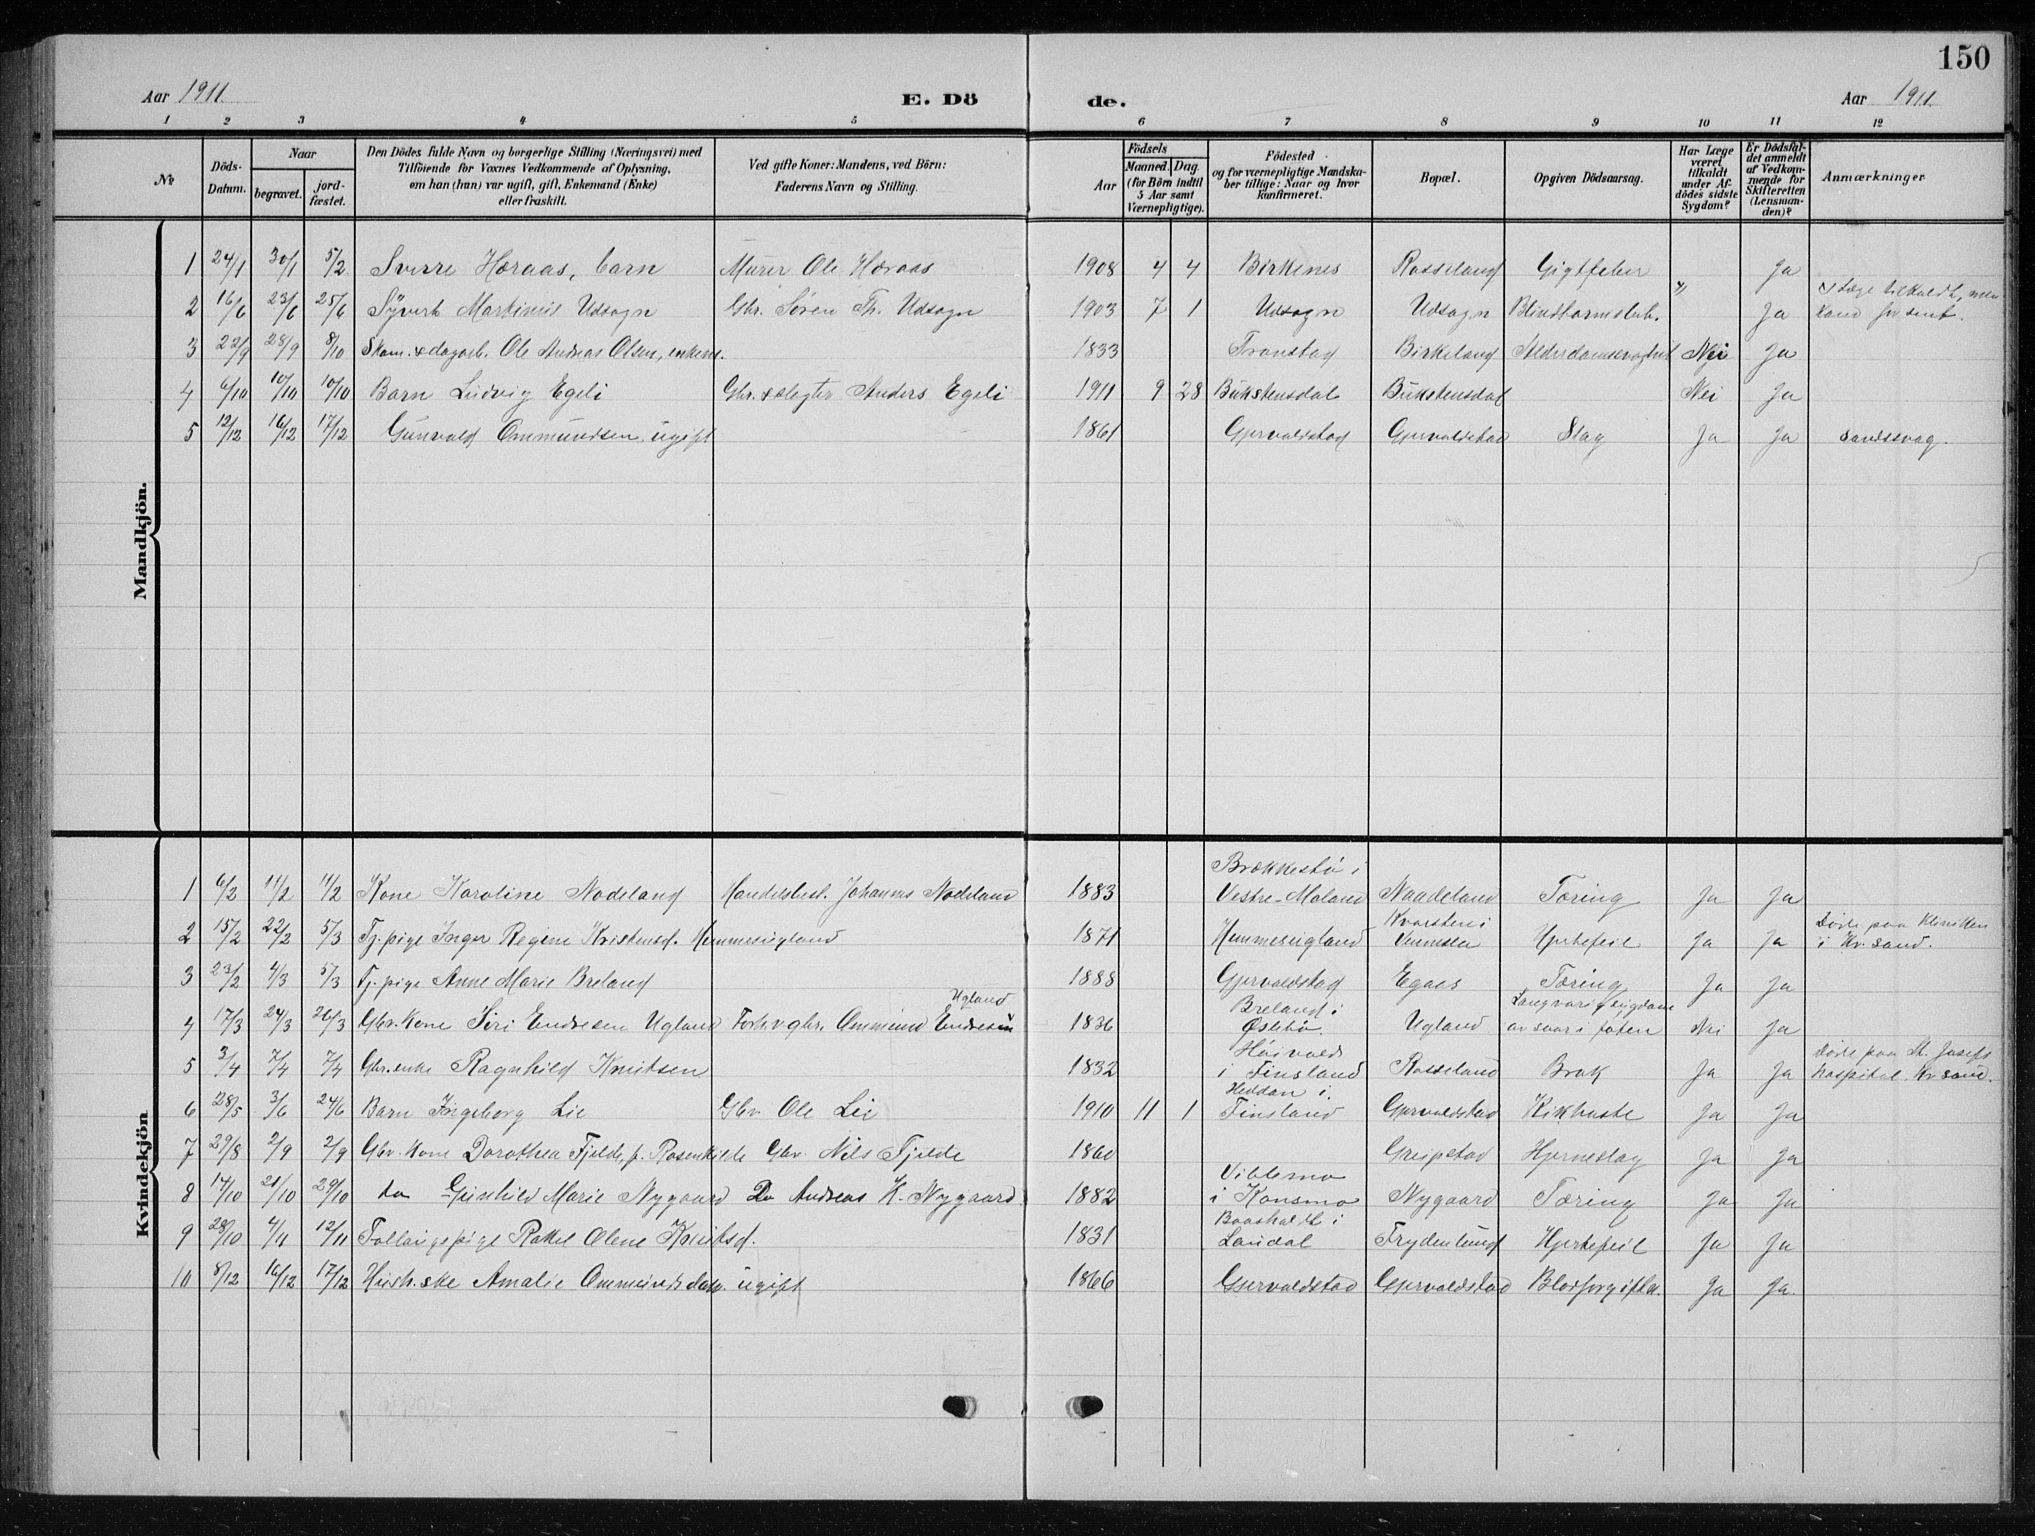 150
Aar 1911. E. Dö de. Aar 1911.
1 2 3 4 5 6 7 8 9 10 11 12
№ Döds-Datum. Naar begravet. jord-fæstet. Den Dödes fulde Navn og borgerlige Stilling (Næringsvei) med Tilföiende for Voxnes Vedkommende af Oplysning, om han (hun) var ugift, gift, Enkemand (Enke) eller fraskilt. Ved gifte Koner: Mandens, ved Börn: Faderens Navn og Stilling. Födsels Aar Maaned. Dag. (for Börn indtil 5 Aar samt Værnepligtige). Födested og for værnepligtige Mandskaber tillige: Naar og hvor konfirmeret. Bopæl. Opgiven Dödsaarsag. Har Læge været tilkaldt under Afdödes sidste Sygdom? Er Dödsfaldet anmeldt af Vedkommende for Skifteretten (Lensmanden)? Anmærkninger.
Mandkjön.
1 24/1 30/1 5/2 Sverre Høraas, barn Murer Ole Høraas 1908 4 4 Birkenes Rosseland Gigtfeber " Ja
2 16/6 23/6 25/6 Syvert Martinius Udsogn Gbr. Søren Th. Udsogn 1903 7 1 Udsogn Udsogn Blindtarmsbet. " Ja Læge tilkaldt, men kom for sent.
3 22/9 28/9 8/10 Skom. & dagarb. Ole Andreas Olsen, enkem. 1833 Tronstad Birkeland Alderdomssvaghet Nei Ja
4 6/10 10/10 10/10 Barn Ludvig Egeli Gbr. & slagter Anders Egeli 1911 9 28 Bukstensdal Bukstensdal Nei Ja
5 12/12 16/12 17/12 Gunvald Ommundsen, ugift 1861 Gjervoldstad Gjervoldstad Slag Ja Ja aandssvag.
Kvindekjön
1 6/2 11/2 11/2 Kone Karoline Nodeland Handelsbest. Johannes Nodeland 1883 Brækkestø i Vestre-Moland Naadeland Tæring Ja Ja
2 15/2 22/2 5/3 Tj.pige Inger Regine Kristensd. Hemmesugland 1871 Hemmesugland Kvarstein i Vennesla Hjertefeil Ja Ja Døde paa kliniken i Kr.sand.
3 23/2 4/3 5/3 Tj.pige Anne Marie Breland 1888 Gjervoldstad Egaas Tæring Ja Ja
4 17/3 24/3 26/3 Gbr.kone Siri Endresen Ugland Forh.v.gbr. Ommund Endresen Ugland 1836 Breland i Øslebø Ugland Langvarig sygdom av saar i foten Nei Ja
5 3/4 7/4 7/4 Gbr.enke Ragnhild Knutsen 1832 Høivolds i Finsland Rosseland Brok Ja Ja Døde paa St. Josefs hospital. Kr.sand.
6 28/5 3/6 24/6 Barn Ingeborg Lie Gbr. Ole Lie 1910 11 1 Heddan i Finsland Gjervoldstad Kikhoste Ja Ja
7 29/8 2/9 2/9 Gbr. kone Dorothea Fjelde, f. Rosenkilde Gbr. Nils Fjelde 1860 Greipstad Hjerneslag Ja Ja
8 17/10 21/10 29/10 do Gunhild Marie Nygaard Do Andreas K. Nygaard 1882 Viblemo i Konsmo Nygaard Tæring Ja Ja
9 28/10 4/11 12/11 Fattigpige Rakel Olene Knutsd. 1831 Laudal Frydenlund Hjertefeil Ja Ja
10 8/12 16/12 17/12 Hush.ske Amalie Ommundsdatr. ugift 1866 Gjervoldstad Gjervoldstad Blodforgiftn. Ja Ja.